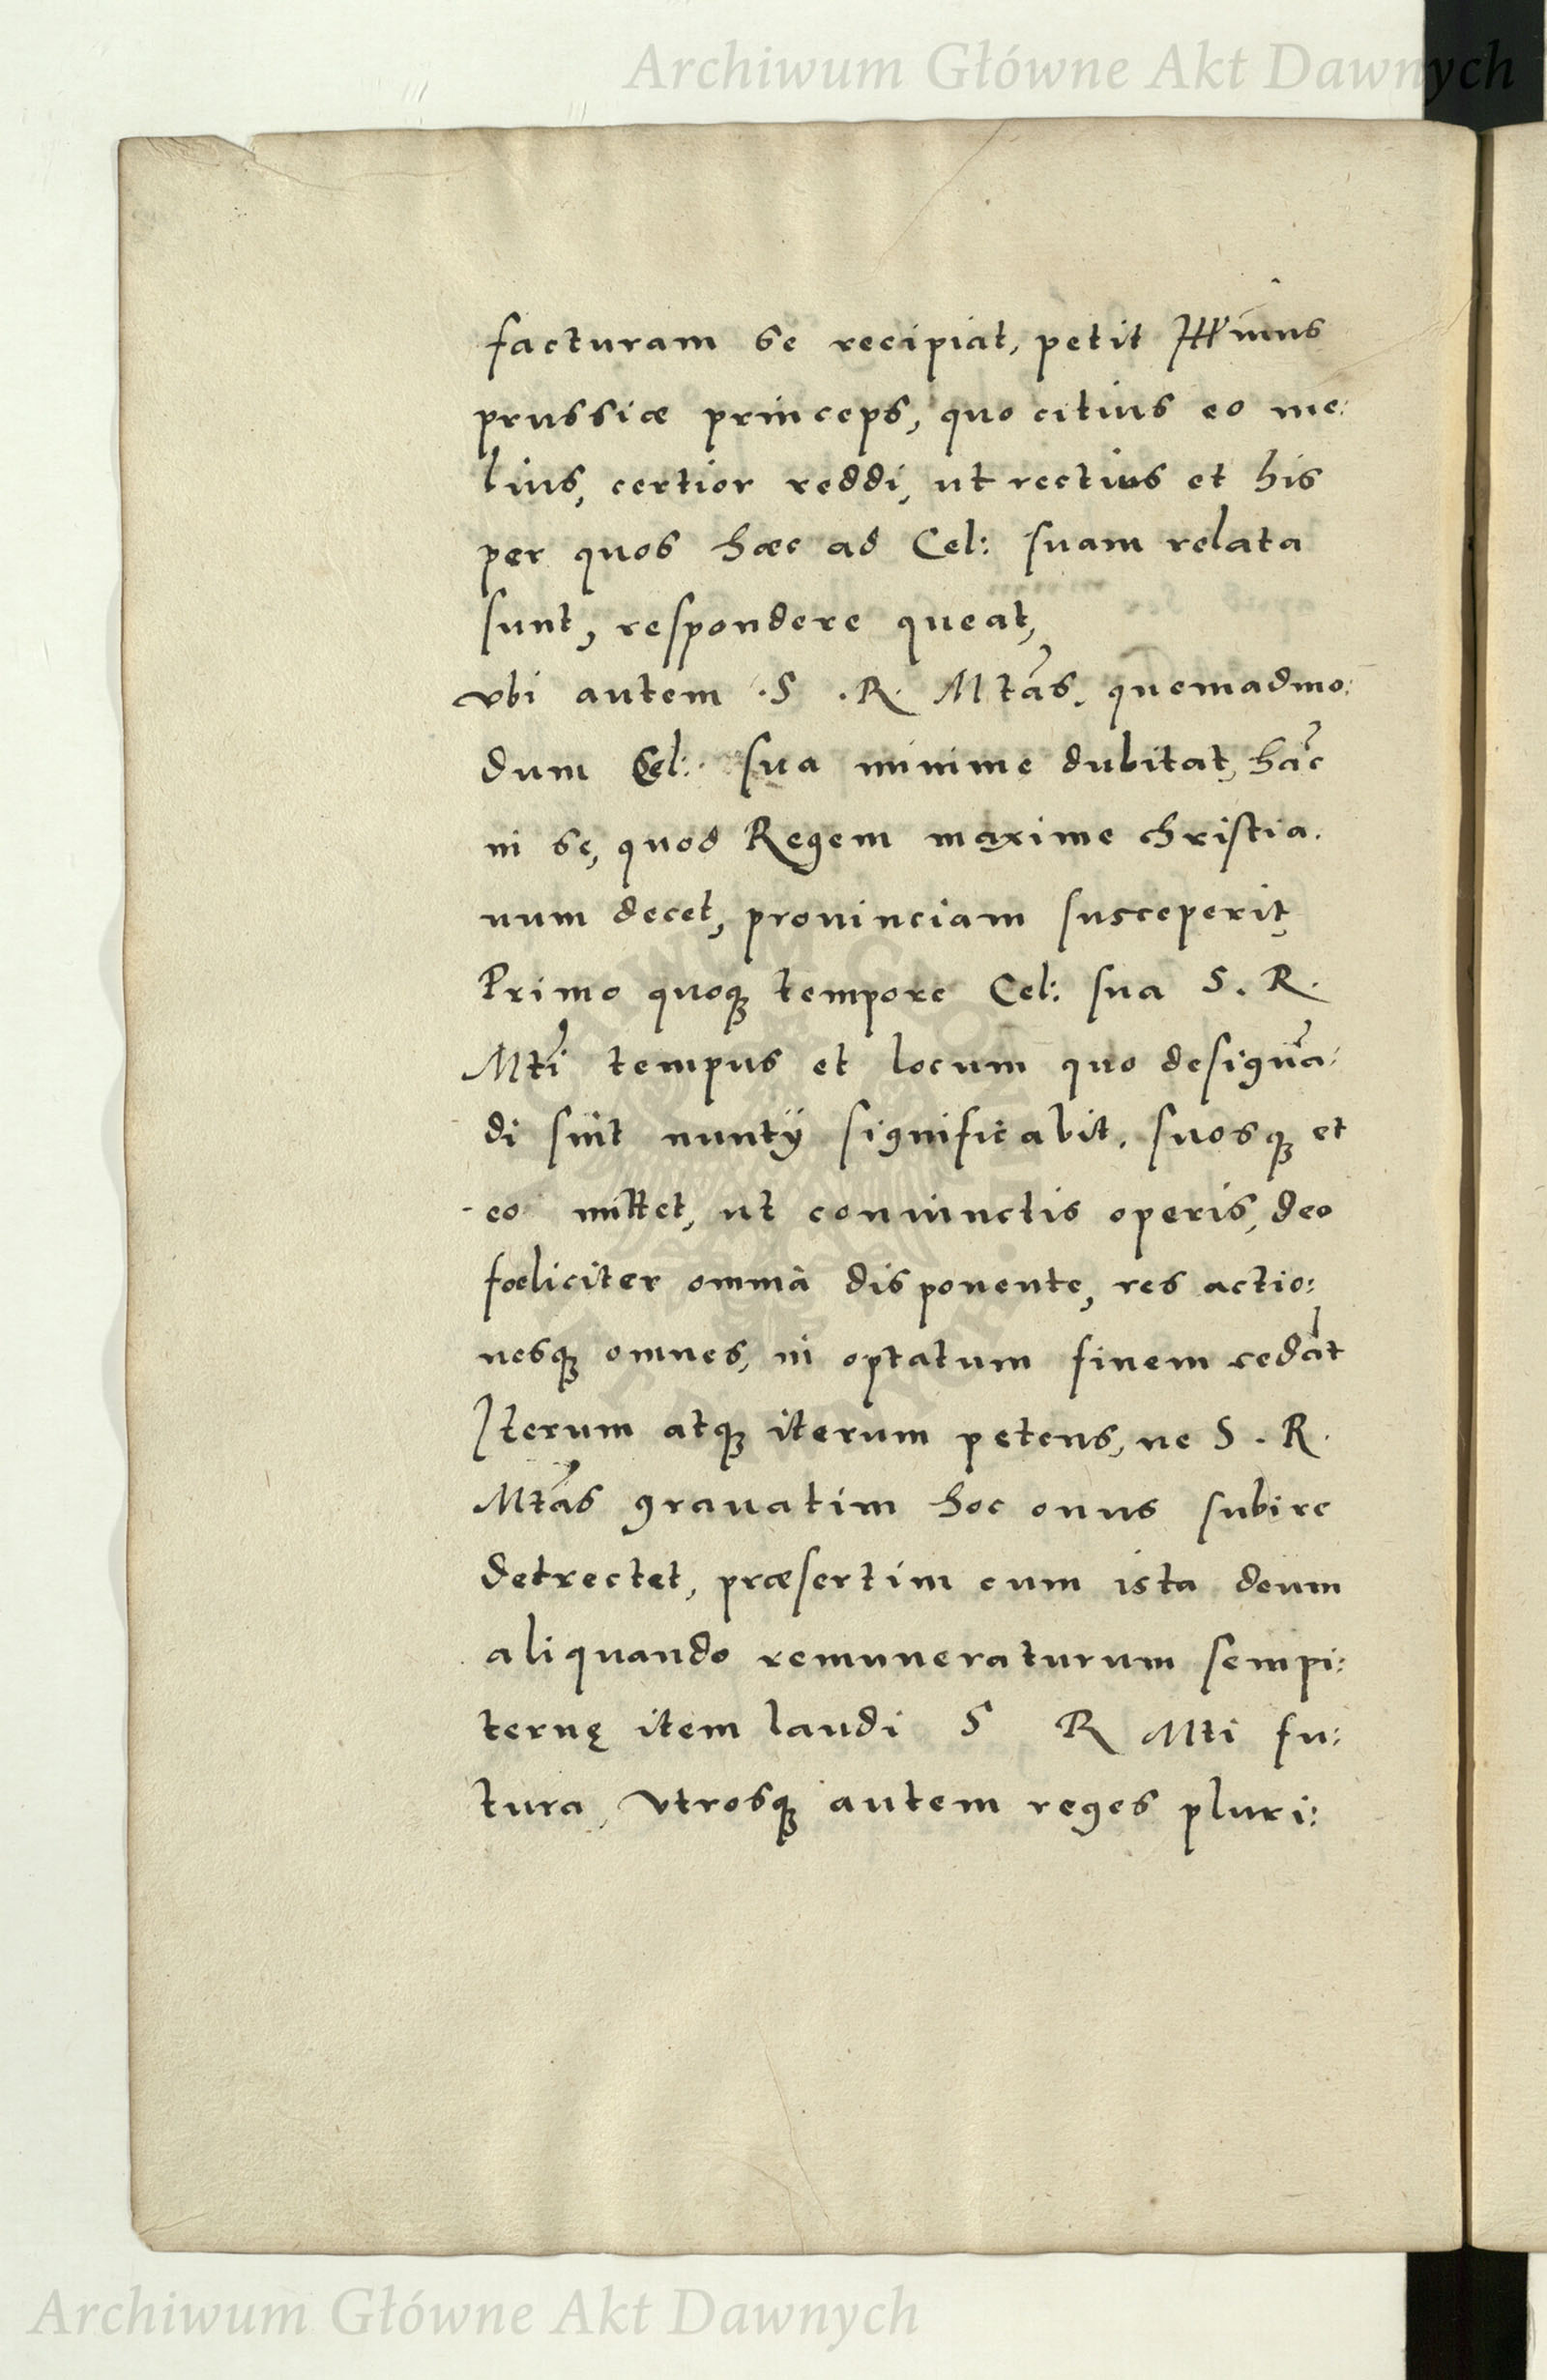 Archiwum Główne Akt Dawnych
facturam se recipiat, petit Illr̃imus
prussiæ princeps, quo citius eo me:
lius, certior reddi, ut rectius et his
per quos hæc ad Cel: suam relata
sunt, respondere queat,
vbi autem .S .R. Mtãs. quemadmo:
dum Cel: sua minime dubitat, hãc
in se, quod Regem maxime christia.
num decet, prouinciam susceperit,
Primo quoqȝ tempore Cel: sua S. R.
Mti̴ tempus et locum quo designã:
di sint nuntÿ significabit. suosqȝ et
eo mittet, ut coniunctis operis, deo
fœliciter omnia disponente, res actio:
nesqȝ omnes, in optatum finem cedãt
Iterum atqȝ iterum petens, ne S. R.
Mtãs grauatim hoc onus subire
detrectet, præsertim cum ista deum
aliquando remuneraturum sempi:
ternę item laudi S R Mti fu:
tura, vtrosqȝ autem reges pluri:
Archiwum Główne Akt Dawnych